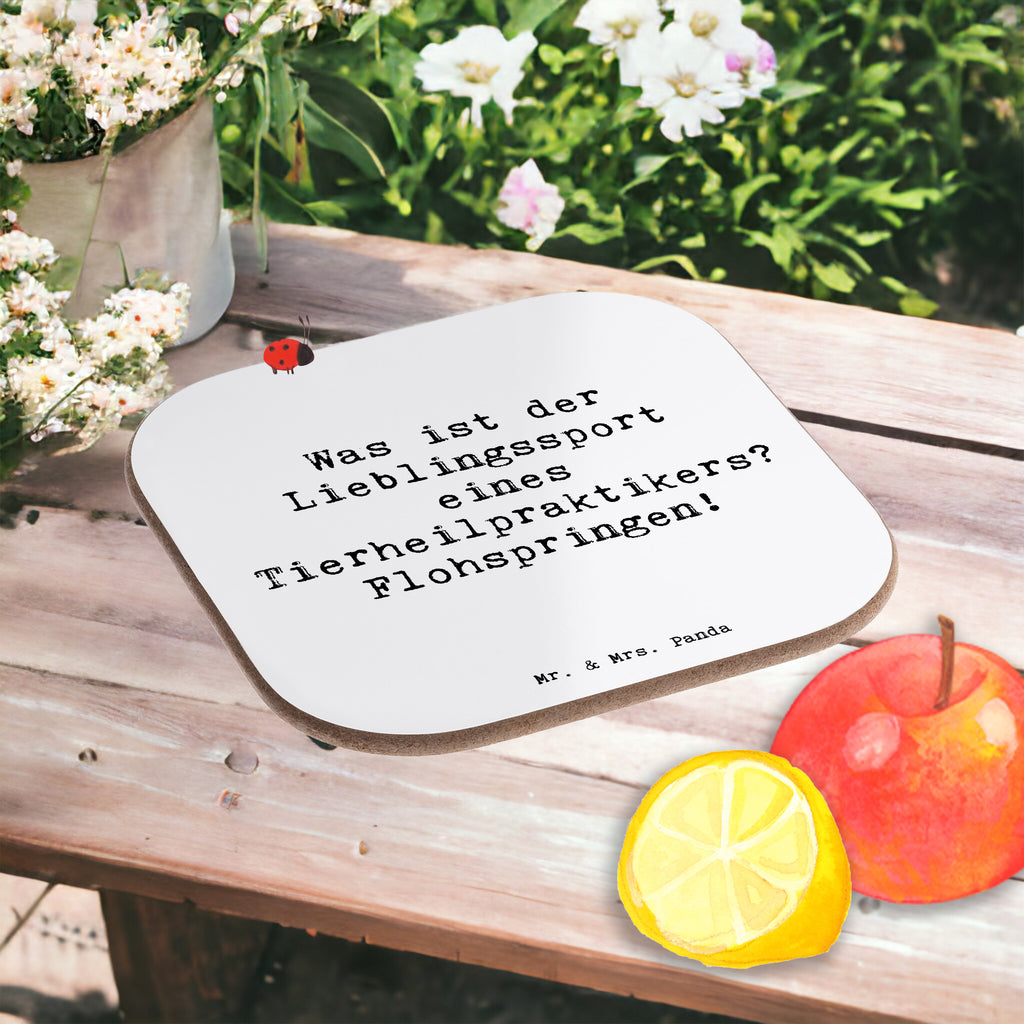 Was ist der
Lieblingssport
eines
Tierheilpraktikers?
Flohspringen!
Mr. & Mrs. Panda